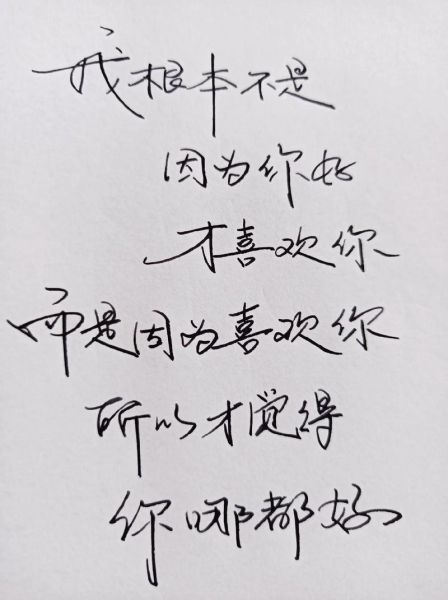 我根本不是
因为你好
才喜欢你
而是因为喜欢你
所以才觉得
你哪都好